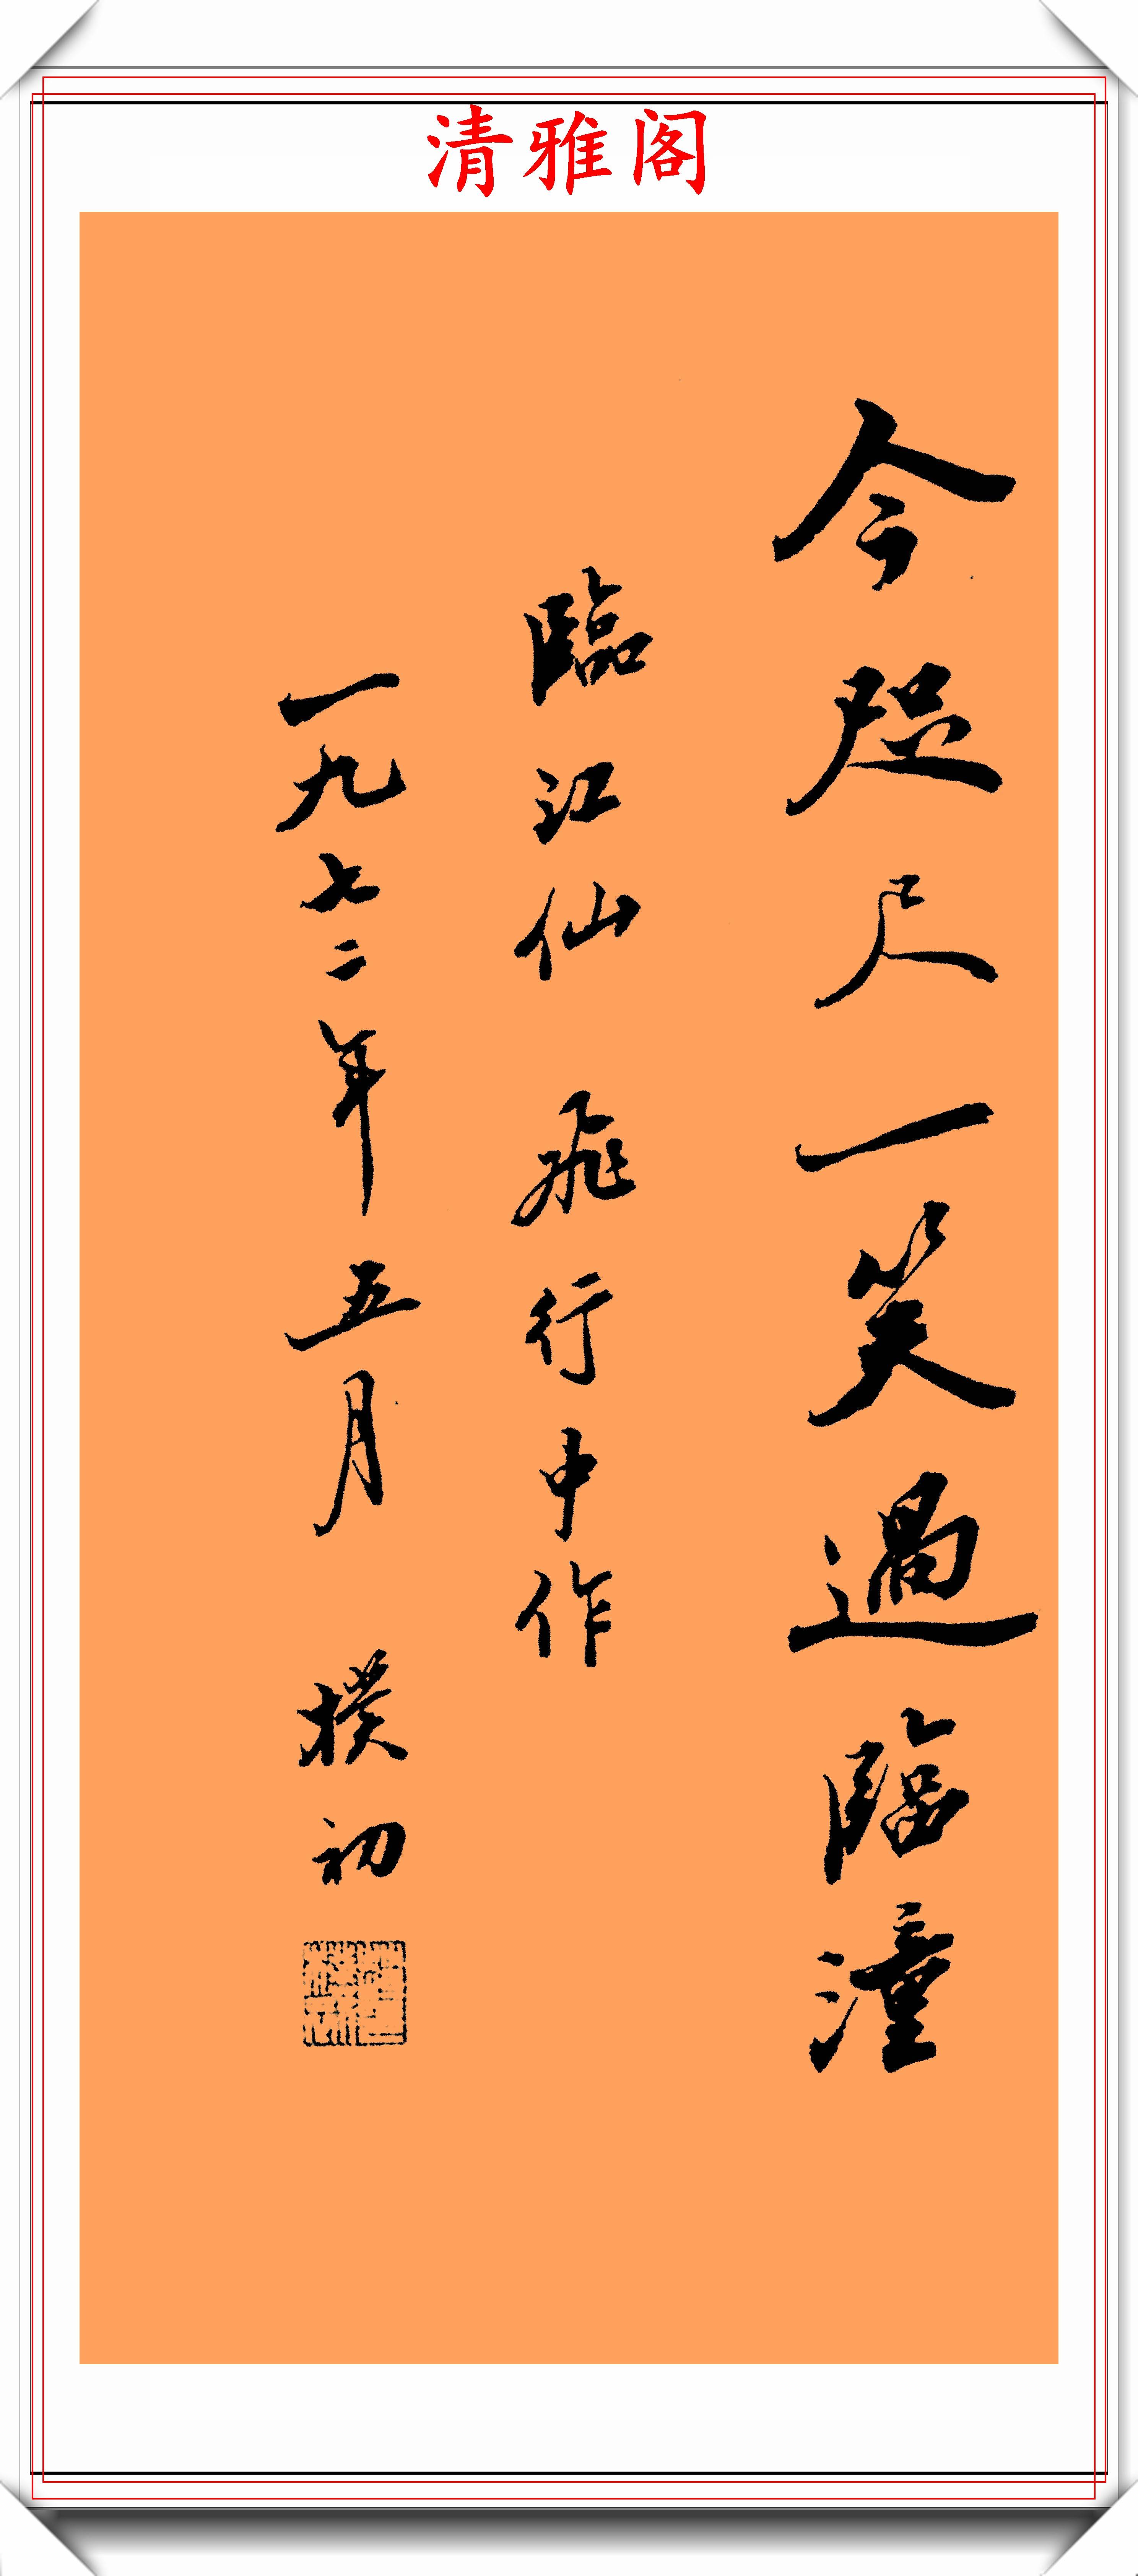 清雅阁
今咫尺一笑過臨潼
臨江仙 飛行中作
一九七二年五月 樸初